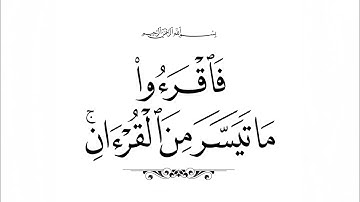 بِسْمِ اللَّهِ الرَّحْمَٰنِ الرَّحِيمِ
فَٱقْرَءُوا۟
مَا تَيَسَّرَ مِنَ ٱلْقُرْءَانِ ۚ